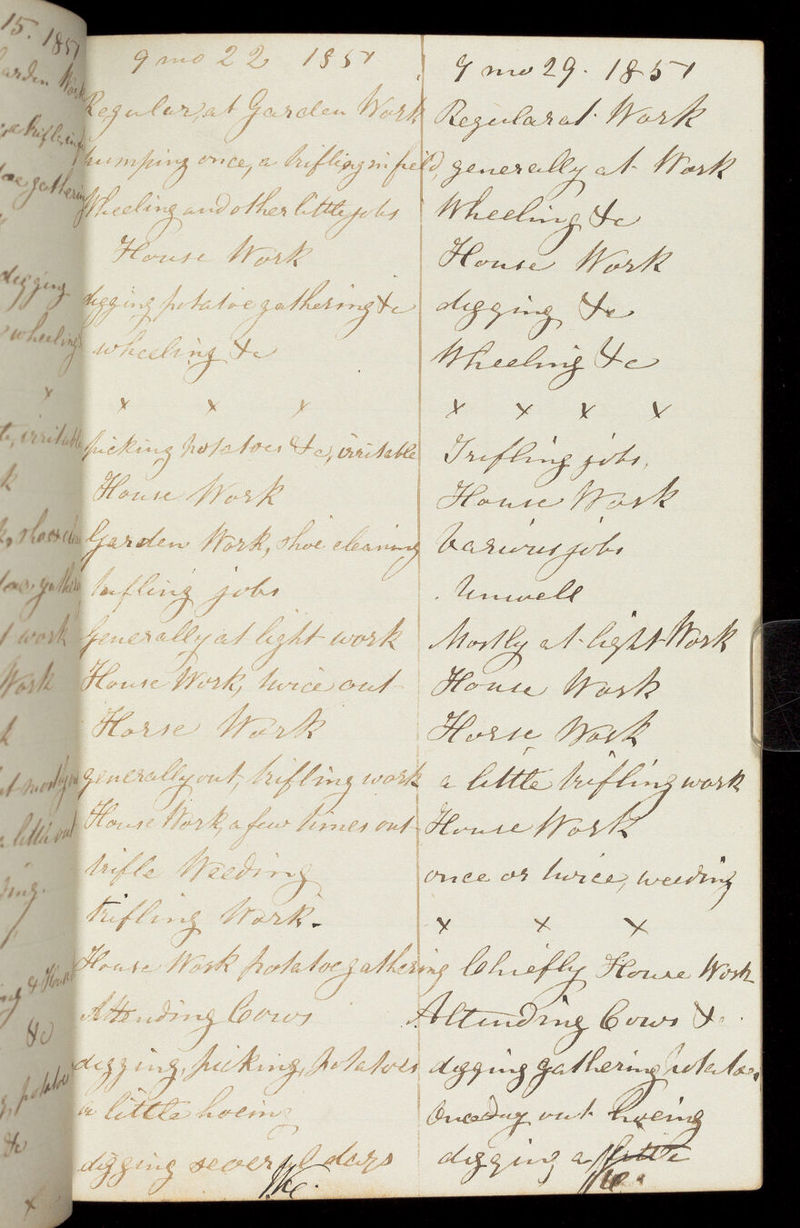 9 mo 22 1851
Regular, at Garden Work
pumping once, a trifling in field,
Wheeling and other little jobs
House Work
digging potatoe gathering &c
wheeling &c
x x x
picking potatoes &c, irritable
House Work
Garden Work, shoe cleaning
trifling jobs
Generally at light work
House Work, twice out
Horse Work
generally out, trifling work
House Work, a few times out
trifle Weeding
trifling Work.
House Work potatoe gathering
Attending Cows
digging, picking, potatoes
a little hoeing
digging several days
&c.
9 mo 29. 1851
Regular at Work
generally at Work
Wheeling &c
House Work
digging &c
Wheeling &c
x x x x
Trifling jobs,
House Work
Various jobs
Unwell
Mostly at light Work
House Work
Horse Work
a little trifling work
House Work
once or twice, weeding
x x x
Chiefly House Work
Attending Cows &c.
digging gathering potatoes,
One day out hoeing
digging a little
&c.
15. 1851
Garden Work
digging
wheeling
x
irritable
work
Work
a little out
&c
potatoe
&c
x